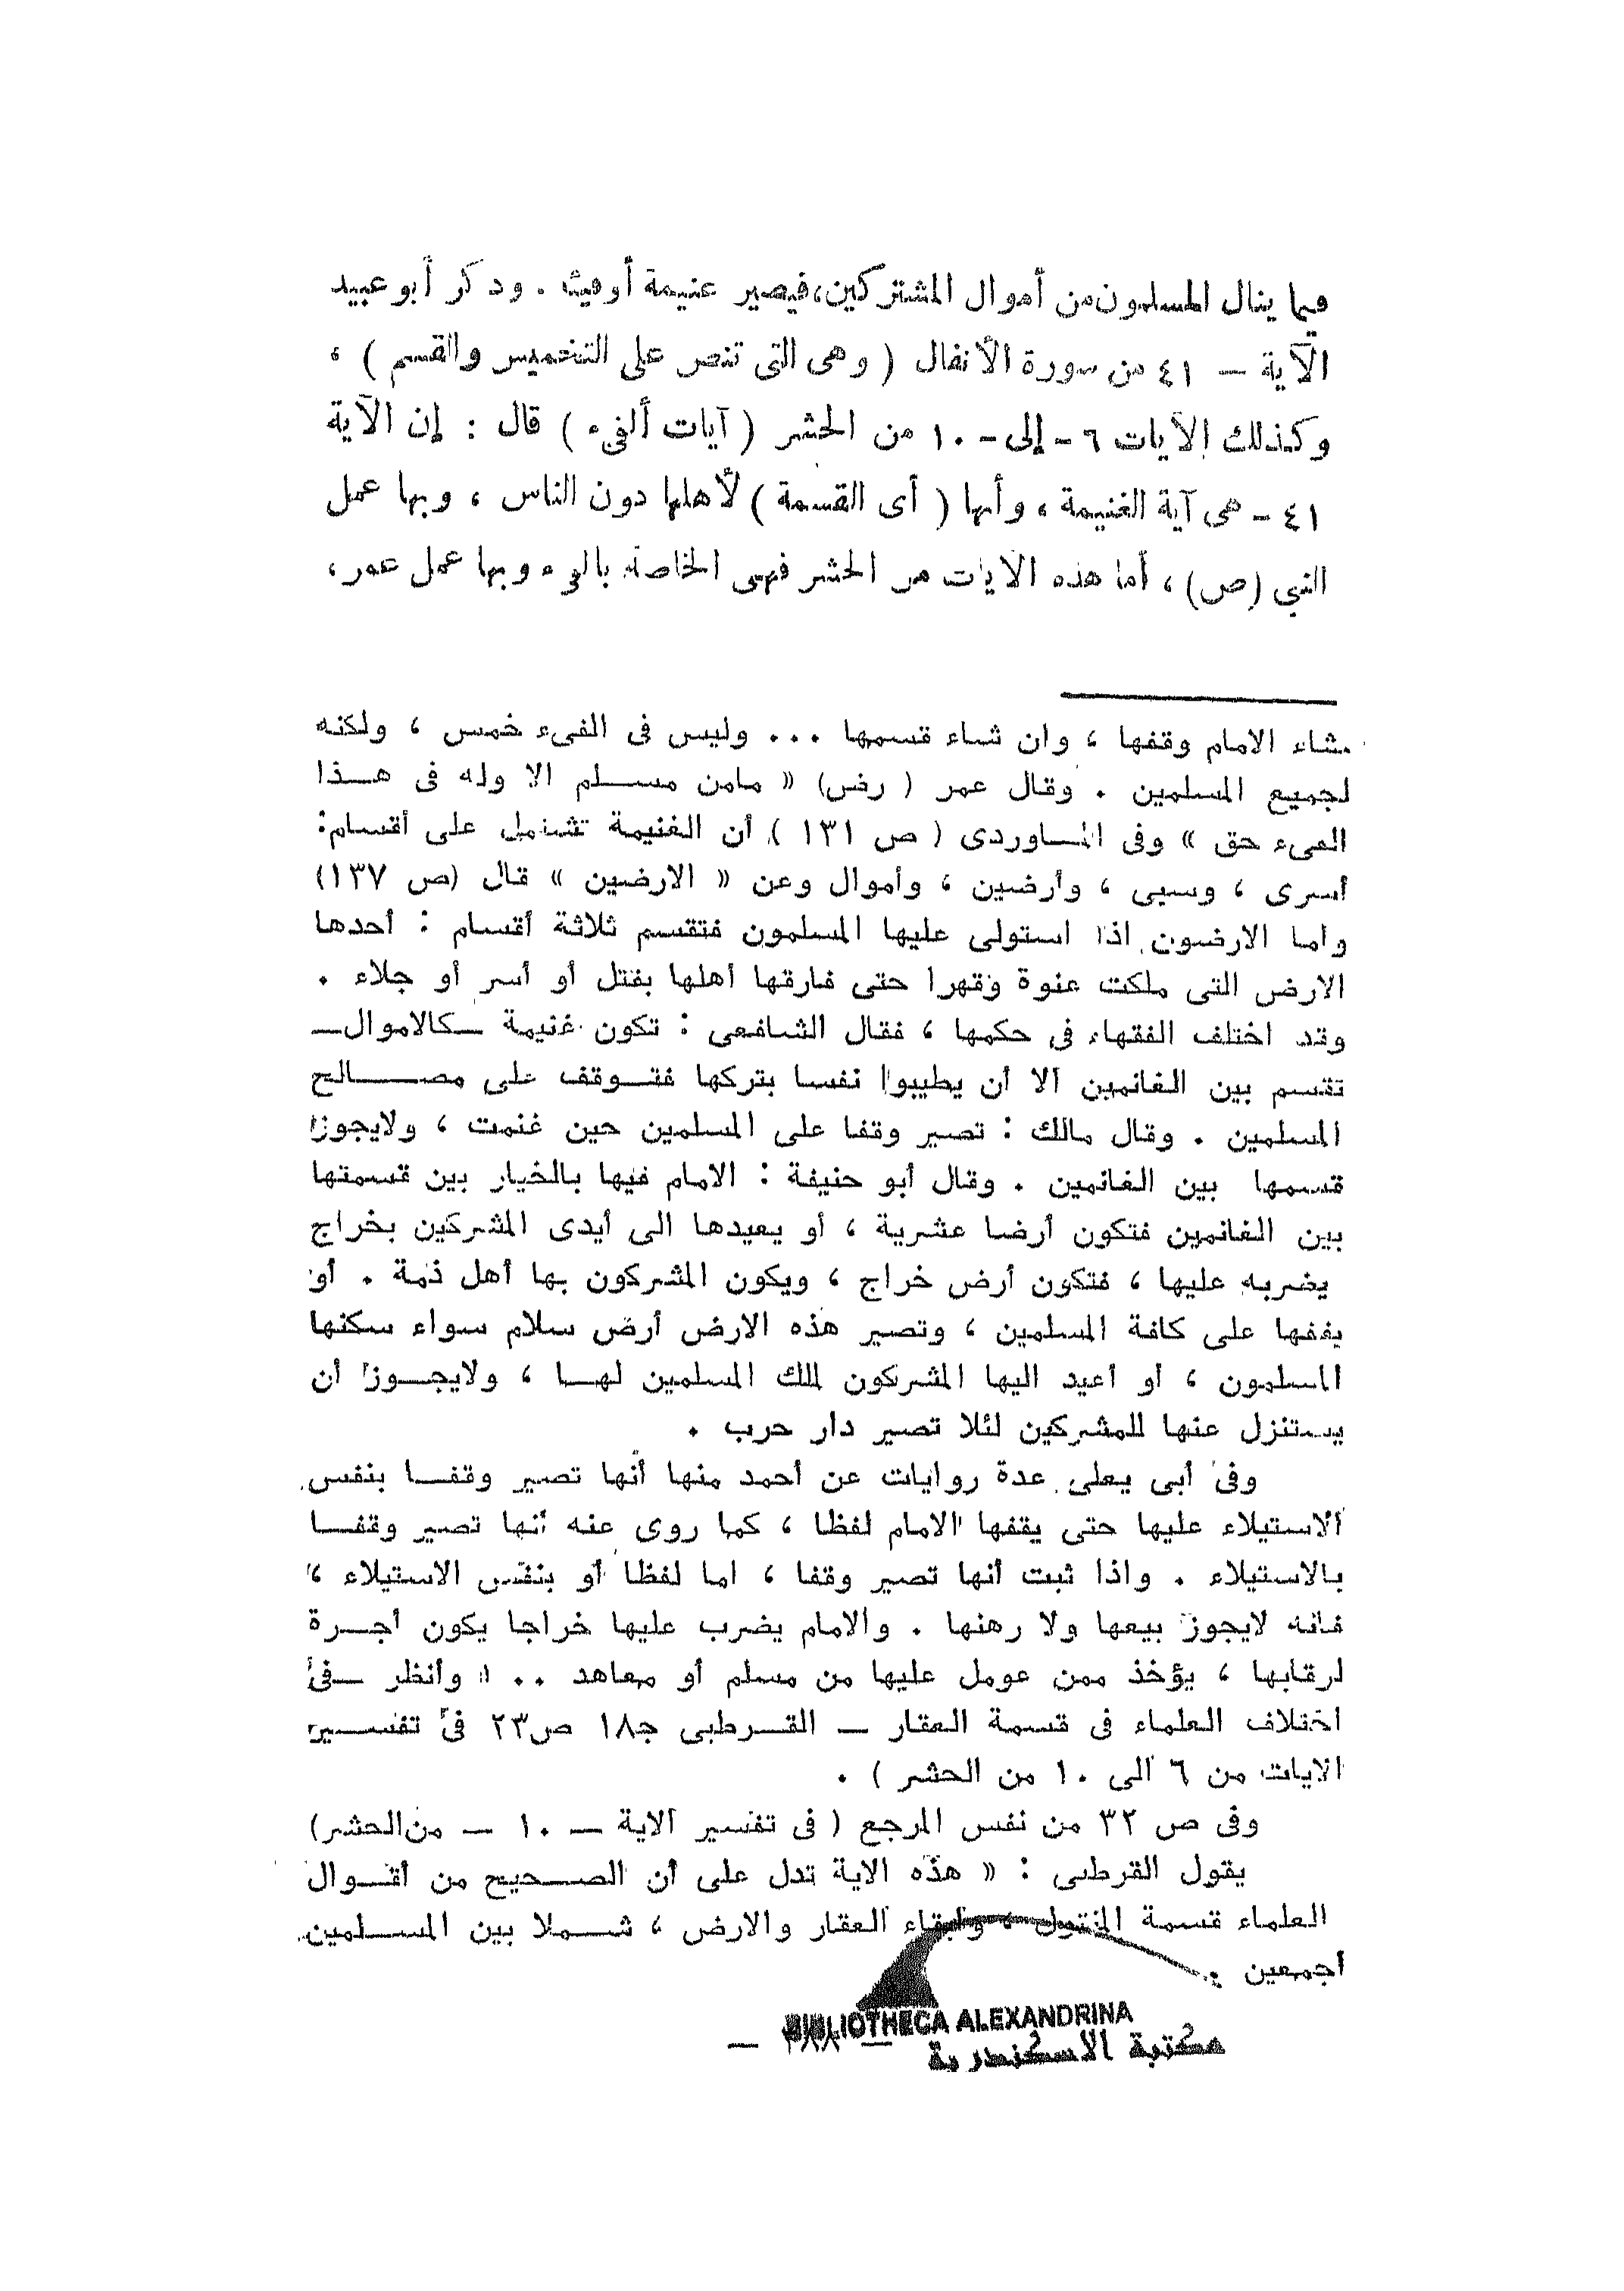 فيما ينال المسلمون من أموال المشتركين، فيصير غنيمة أو فيئا . وذكر أبو عبيد
الآية – ٤١ من سورة الأنفال ( وهى التى تنص على التخميس والقسم ) ،
وكذلك الآيات ٦ – إلى – ١٠ من الحشر ( آيات ألفىء ) قال : إن الآية
٤١ – هى آية الغنيمة ، وأنها ( أى القسمة ) لأهلها دون الناس ، وبها عمل
النبى (ص) ، أما هذه الآيات من الحشر فهى الخاصة بالفىء وبها عمل عمر،
شاء الامام وقفها ، وان شاء قسمها ... وليس فى الفىء خمس ، ولكنه
لجميع المسلمين . وقال عمر ( رض) « مامن مسلم الا وله فى هذا
الفىء حق » وفى الماوردى ( ص ١٣١ ) أن الغنيمة تشتمل على أقسام:
أسرى ، وسبى ، وأرضين ، وأموال وعن « الارضين » قال (ص ١٣٧)
وأما الارضون اذا استولى عليها المسلمون فتقسم ثلاثة أقسام : أحدها
الارض التى ملكت عنوة وقهرا حتى فارقها أهلها بقتل أو أسر أو جلاء .
وقد اختلف الفقهاء فى حكمها ، فقال الشافعى : تكون غنيمة –كالاموال–
تقسم بين الغانمين الا أن يطيبوا نفسا بتركها فتوقف على مصالح
المسلمين . وقال مالك : تصير وقفا على المسلمين حين غنمت ، ولايجوز
قسمها بين الغانمين . وقال أبو حنيفة : الامام فيها بالخيار بين قسمتها
بين الغانمين فتكون أرضا عشرية ، أو يعيدها الى أيدى المشركين بخراج
يضربه عليها ، فتكون أرض خراج ، ويكون المشركون بها أهل ذمة . أو
يقفها على كافة المسلمين ، وتصير هذه الارض أرض سلام سواء سكنها
المسلمون ، أو أعيد اليها المشركون لملك المسلمين لها ، ولايجوز أن
يستنزل عنها للمشركين لئلا تصير دار حرب .
وفى أبى يعلى عدة روايات عن أحمد منها أنها تصير وقفا بنفس
الاستيلاء عليها حتى يقفها الامام لفظا ، كما روى عنه أنها تصير وقفا
بالاستيلاء . واذا ثبت أنها تصير وقفا ، اما لفظا أو بنفس الاستيلاء ،
فانه لايجوز بيعها ولا رهنها . والامام يضرب عليها خراجا يكون أجرة
لرقابها ، يؤخذ ممن عومل عليها من مسلم أو معاهد .. ( وأنظر – فى
اختلاف العلماء فى قسمة العقار – القرطبى ج١٨ ص٢٣ فى تفسير
الايات من ٦ الى ١٠ من الحشر ) .
وفى ص ٣٢ من نفس المرجع ( فى تفسير الاية – ١٠ – من الحشر)
يقول القرطبى : « هذه الاية تدل على أن الصحيح من أقوال
العلماء قسمة المنقول ، وابقاء العقار والارض ، شملا بين المسلمين
أجمعين .
BIBLIOTHECA ALEXANDRINA
مكتبة الاسكندرية